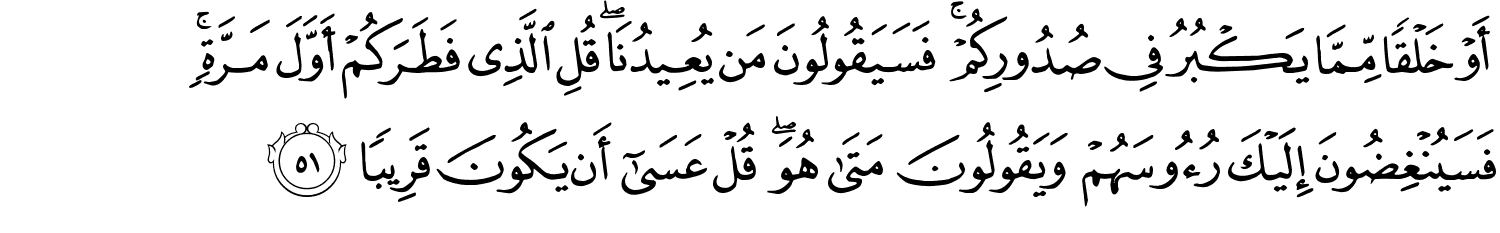 أَوۡ خَلۡقٗا مِّمَّا يَكۡبُرُ فِي صُدُورِكُمۡۚ فَسَيَقُولُونَ مَن يُعِيدُنَاۖ قُلِ ٱلَّذِي فَطَرَكُمۡ أَوَّلَ مَرَّةٖۚ
فَسَيُنۡغِضُونَ إِلَيۡكَ رُءُوسَهُمۡ وَيَقُولُونَ مَتَىٰ هُوَۖ قُلۡ عَسَىٰٓ أَن يَكُونَ قَرِيبٗا ٥١